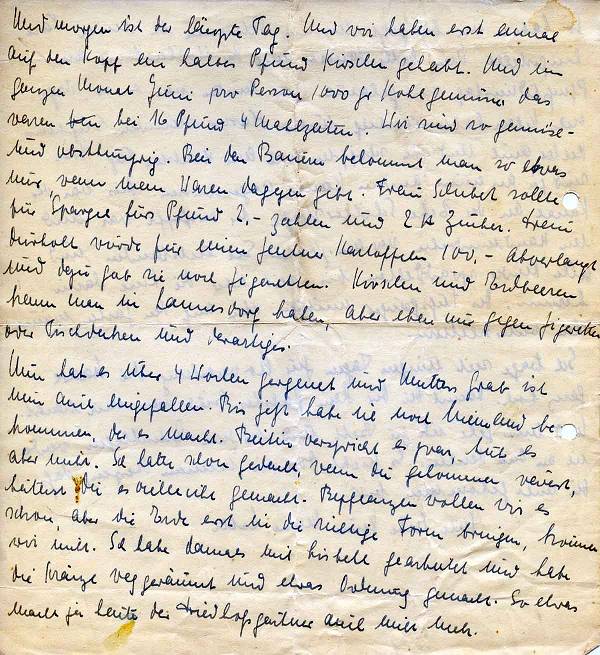 Und morgen ist der längste Tag. Und wir haben erst einmal
auf den Kopf ein halbes Pfund Kirschen gehabt. Und im
ganzen Monat Juni pro Person 1000 gr Kohlgemüse, das
waren bei 16 Pfund 4 Mahlzeiten. Wir sind so gemüse-
und obsthungrig. Bei den Bauern bekommt man so etwas
nur wenn man Waren dagegen gibt. Frau Schubert sollte
für Spargel fürs Pfund 2,- zahlen und 2 Zucker. Frau
wurde für einen Zentner Kartoffeln 100,- abverlangt
und dazu gab sie noch Zigaretten. Kirschen und Erdbeeren
kann man in Lannesdorf haben, aber eben nur gegen Zigaretten
oder Tischdecken und derartiges.
Nun hat es über 4 Wochen geregnet und Mutters Grab ist
nun auch eingefallen. Bis jetzt habe ich noch niemand be-
kommen, der es macht. verspricht es zwar, tut es
aber nicht. Ich hatte schon gedacht, wenn Du gekommen wärest,
hättest Du es vielleicht gemacht. Bepflanzen wollen wir es
schon, aber die Erde erst in die richtige Form bringen, können
wir nicht. Ich habe damals mit gearbeitet und habe
die Kränze weggeräumt und etwas Ordnung gemacht. So etwas
macht ja heute der Friedhofsgärtner auch nicht mehr.